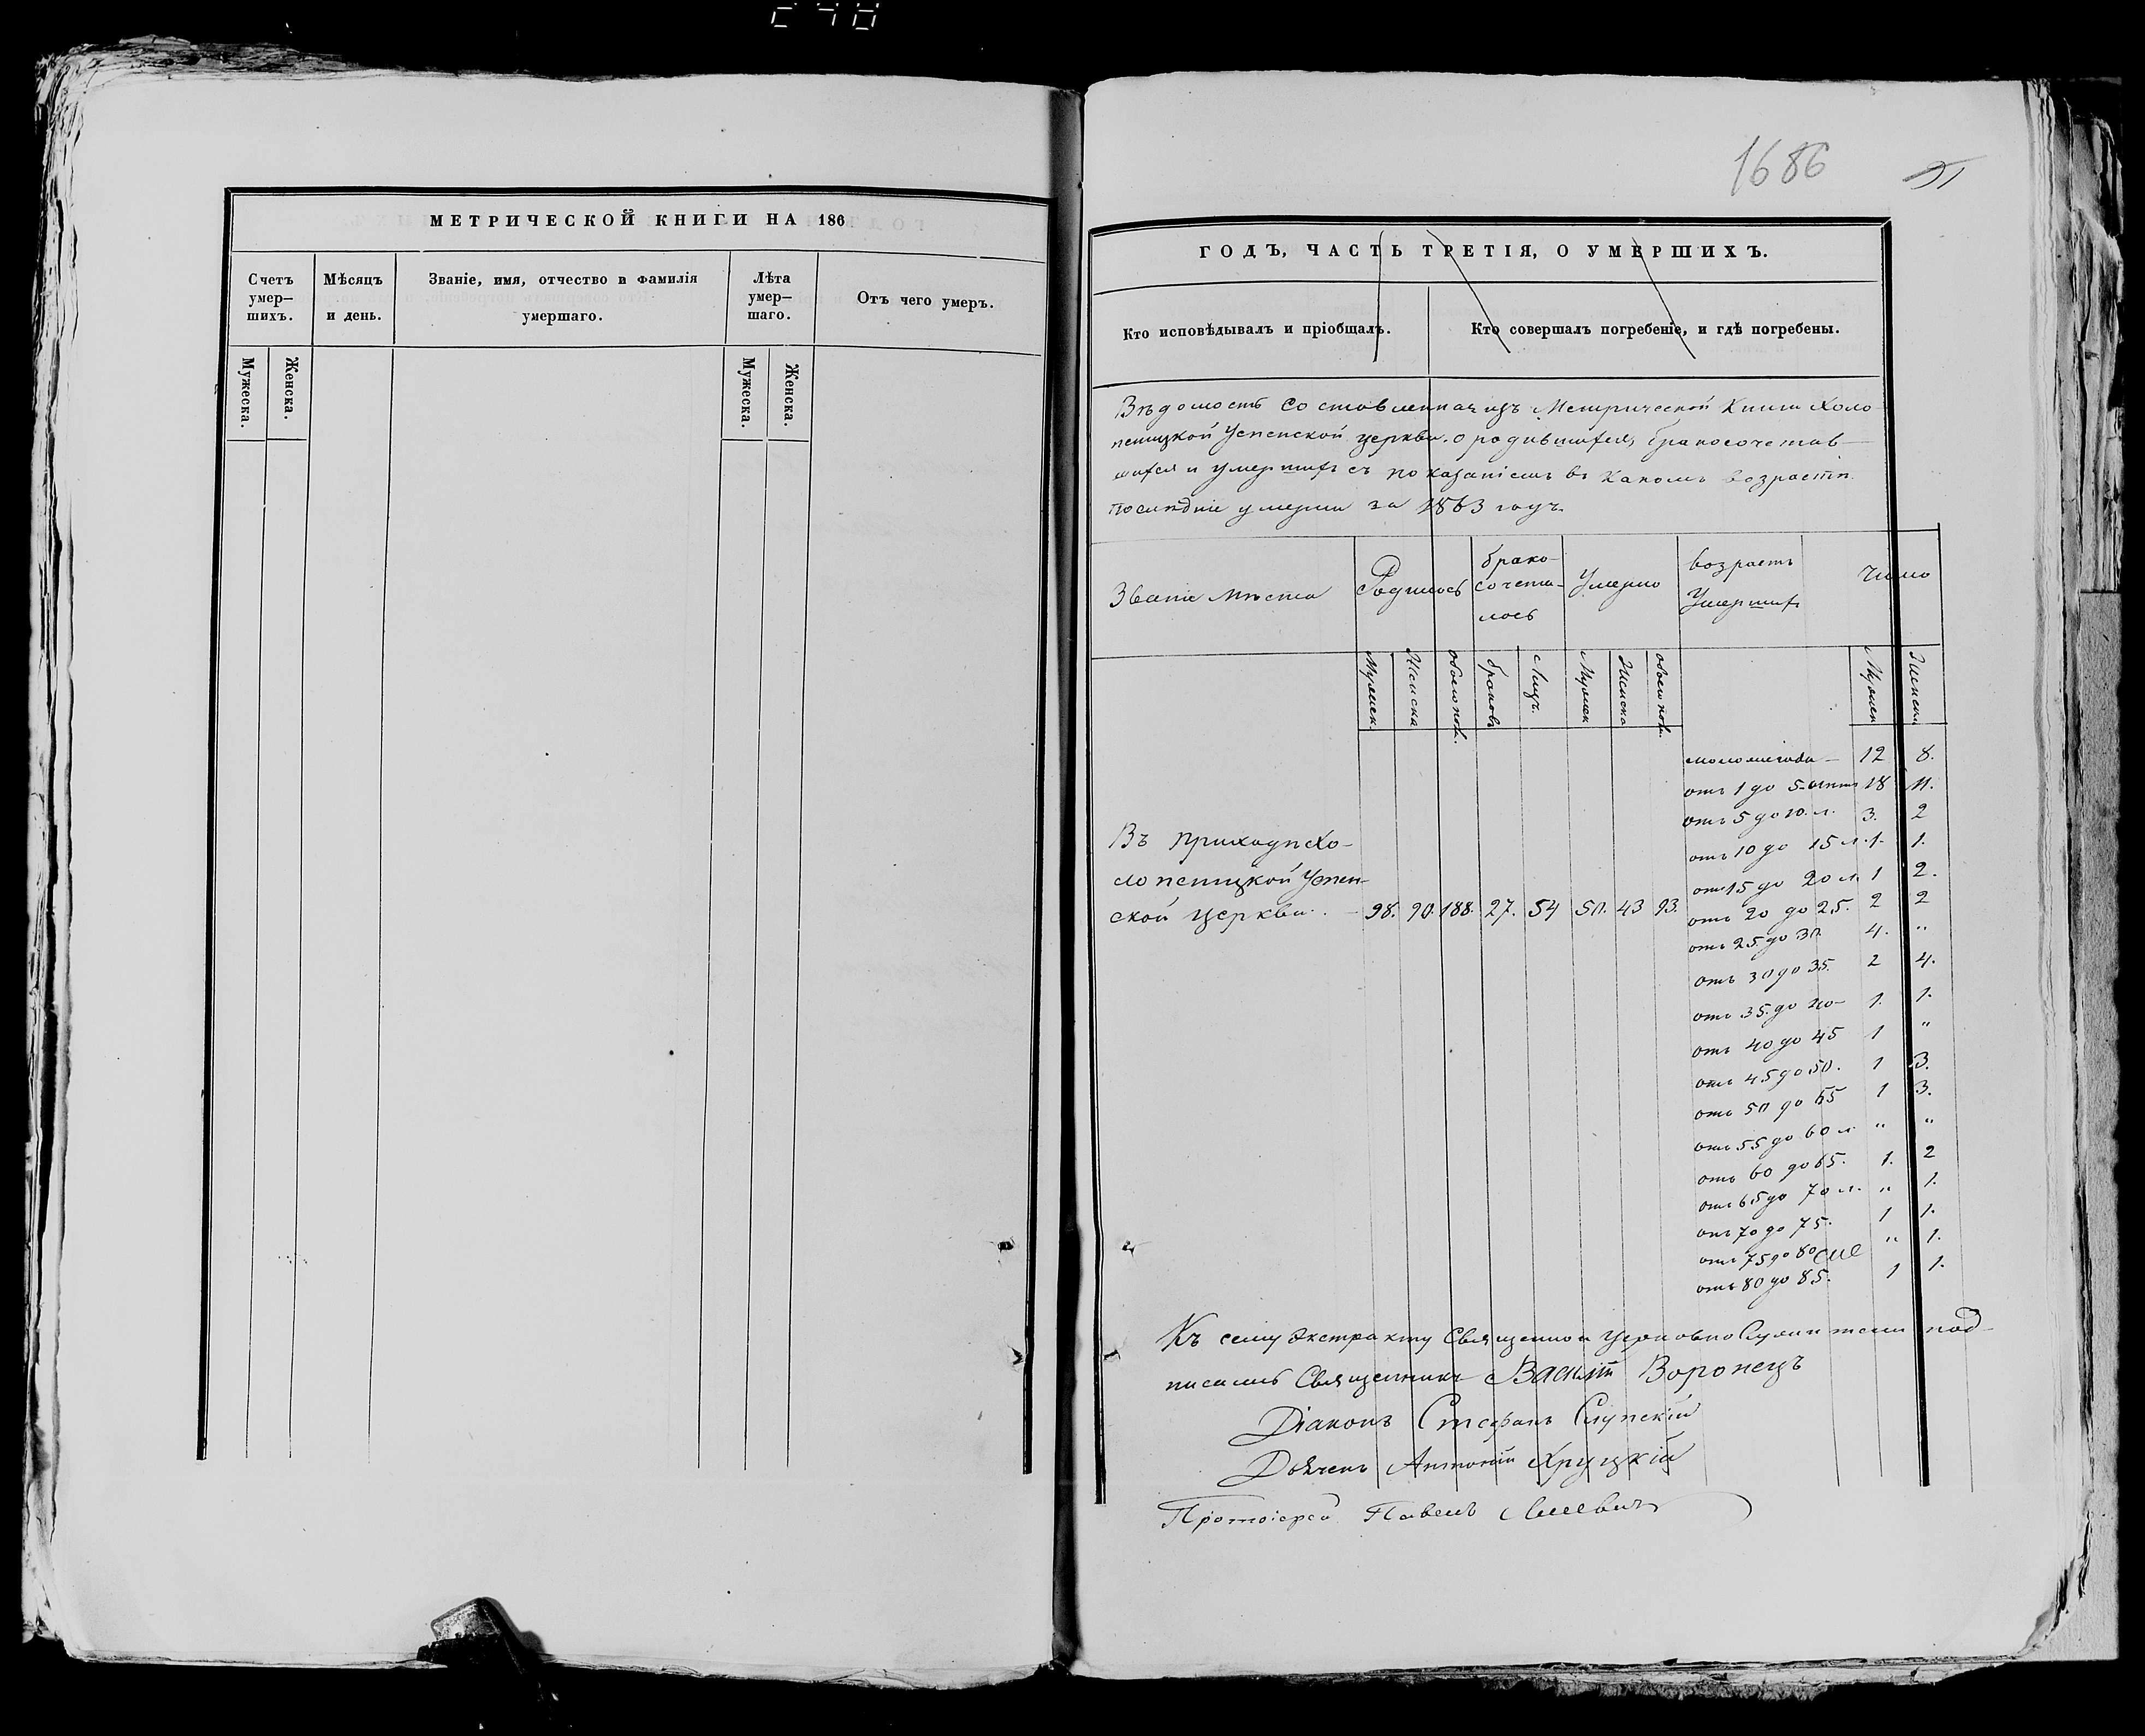 МЕТРИЧЕСКОЙ КНИГИ НА 186
Счетъ умер– шихъ.
Мѣсяцъ и день.
Званіе, имя, отчество и фамилія умершаго.
Лѣта умер– шаго.
Отъ чего умеръ.
Мужеска.
Женска.
Мужеска.
Женска.
1686
ГОДЪ, ЧАСТЬ ТРЕТІЯ, О УМЕРШИХЪ.
Кто исповѣдывалъ и пріобщалъ.
Кто совершалъ погребеніе, и гдѣ погребены.
Вѣдомость составленная изъ Метрической Книги Холо
пеницкой Успенской церкви о родившихся, бракосочетав–
шихся и умершихъ съ показаніемъ въ какомъ возрастѣ
послѣдніе умерли за 1863 годъ.
Званіе мѣста
Родилось
брако–
сочета–
лось
Умерло
возрастъ
Умершихъ
Число
Мужск.
Женска
обоего пол.
браковъ
Лицъ.
Мужск
Женска
обоего пол.
Мужск
Женск.
моложе года – 12 8.
отъ 1 до 5-лѣтъ 18 11.
отъ 5 до 10. л. 3. 2
отъ 10 до 15 л. 1. 1.
отъ 15 до 20 л. 1 2.
Въ приходѣ Хо–
лопеницкой Успен–
ской церкви. – 98. 90. 188. 27. 54 50. 43 93.
отъ 20 до 25. 2 2
отъ 25. до 30. 4. "
отъ 30 до 35. 2 4.
отъ 35. до 40– 1. 1.
отъ 40 до 45 1 "
отъ 45 до 50. 1 3.
отъ 50 до 55 1 3.
отъ 55 до 60 л. " "
отъ 60 до 65. 1. 2
отъ 65 до 70 л. " 1.
отъ 70 до 75. 1 1.
отъ 75 до 80 " 1.
отъ 80 до 85. 1 1.
Къ сему Экстракту Священно и церковно Служители под–
писались Священникъ Василій Воронецъ
Діаконъ Стефанъ Слупскій
Дьячекъ Антоній Хруцкій
Протоіерей Павелъ